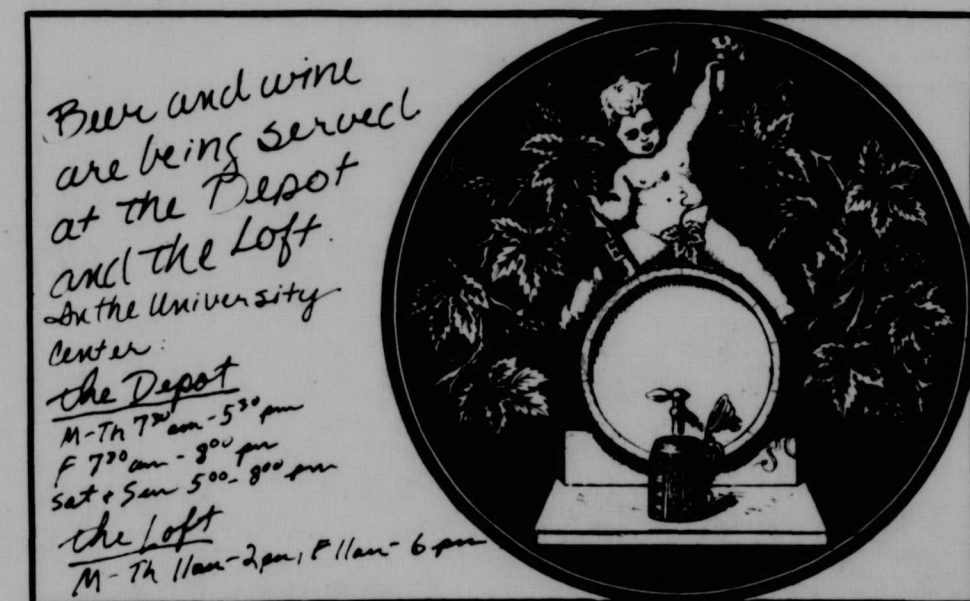 Beer and wine
are being served
at the Depot
and the Loft.
In the University
Center:
the Depot
M-Th 7³⁰ am - 5³⁰ pm
F 7³⁰ am - 8⁰⁰ pm
Sat + Sun 5⁰⁰ - 8⁰⁰ pm
the Loft
M-Th 11am-2pm, F 11am-6pm